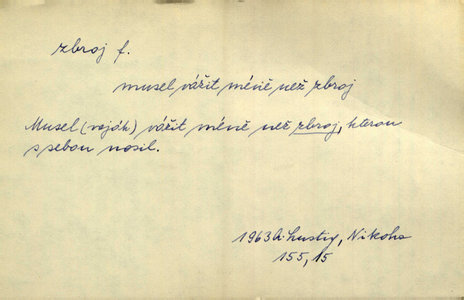 zbroj f.
musel vážit méně než zbroj
Musel (voják) vážit méně než zbroj, kterou
s sebou nosil.
1963 A. Lustig, Nikoho
155, 15